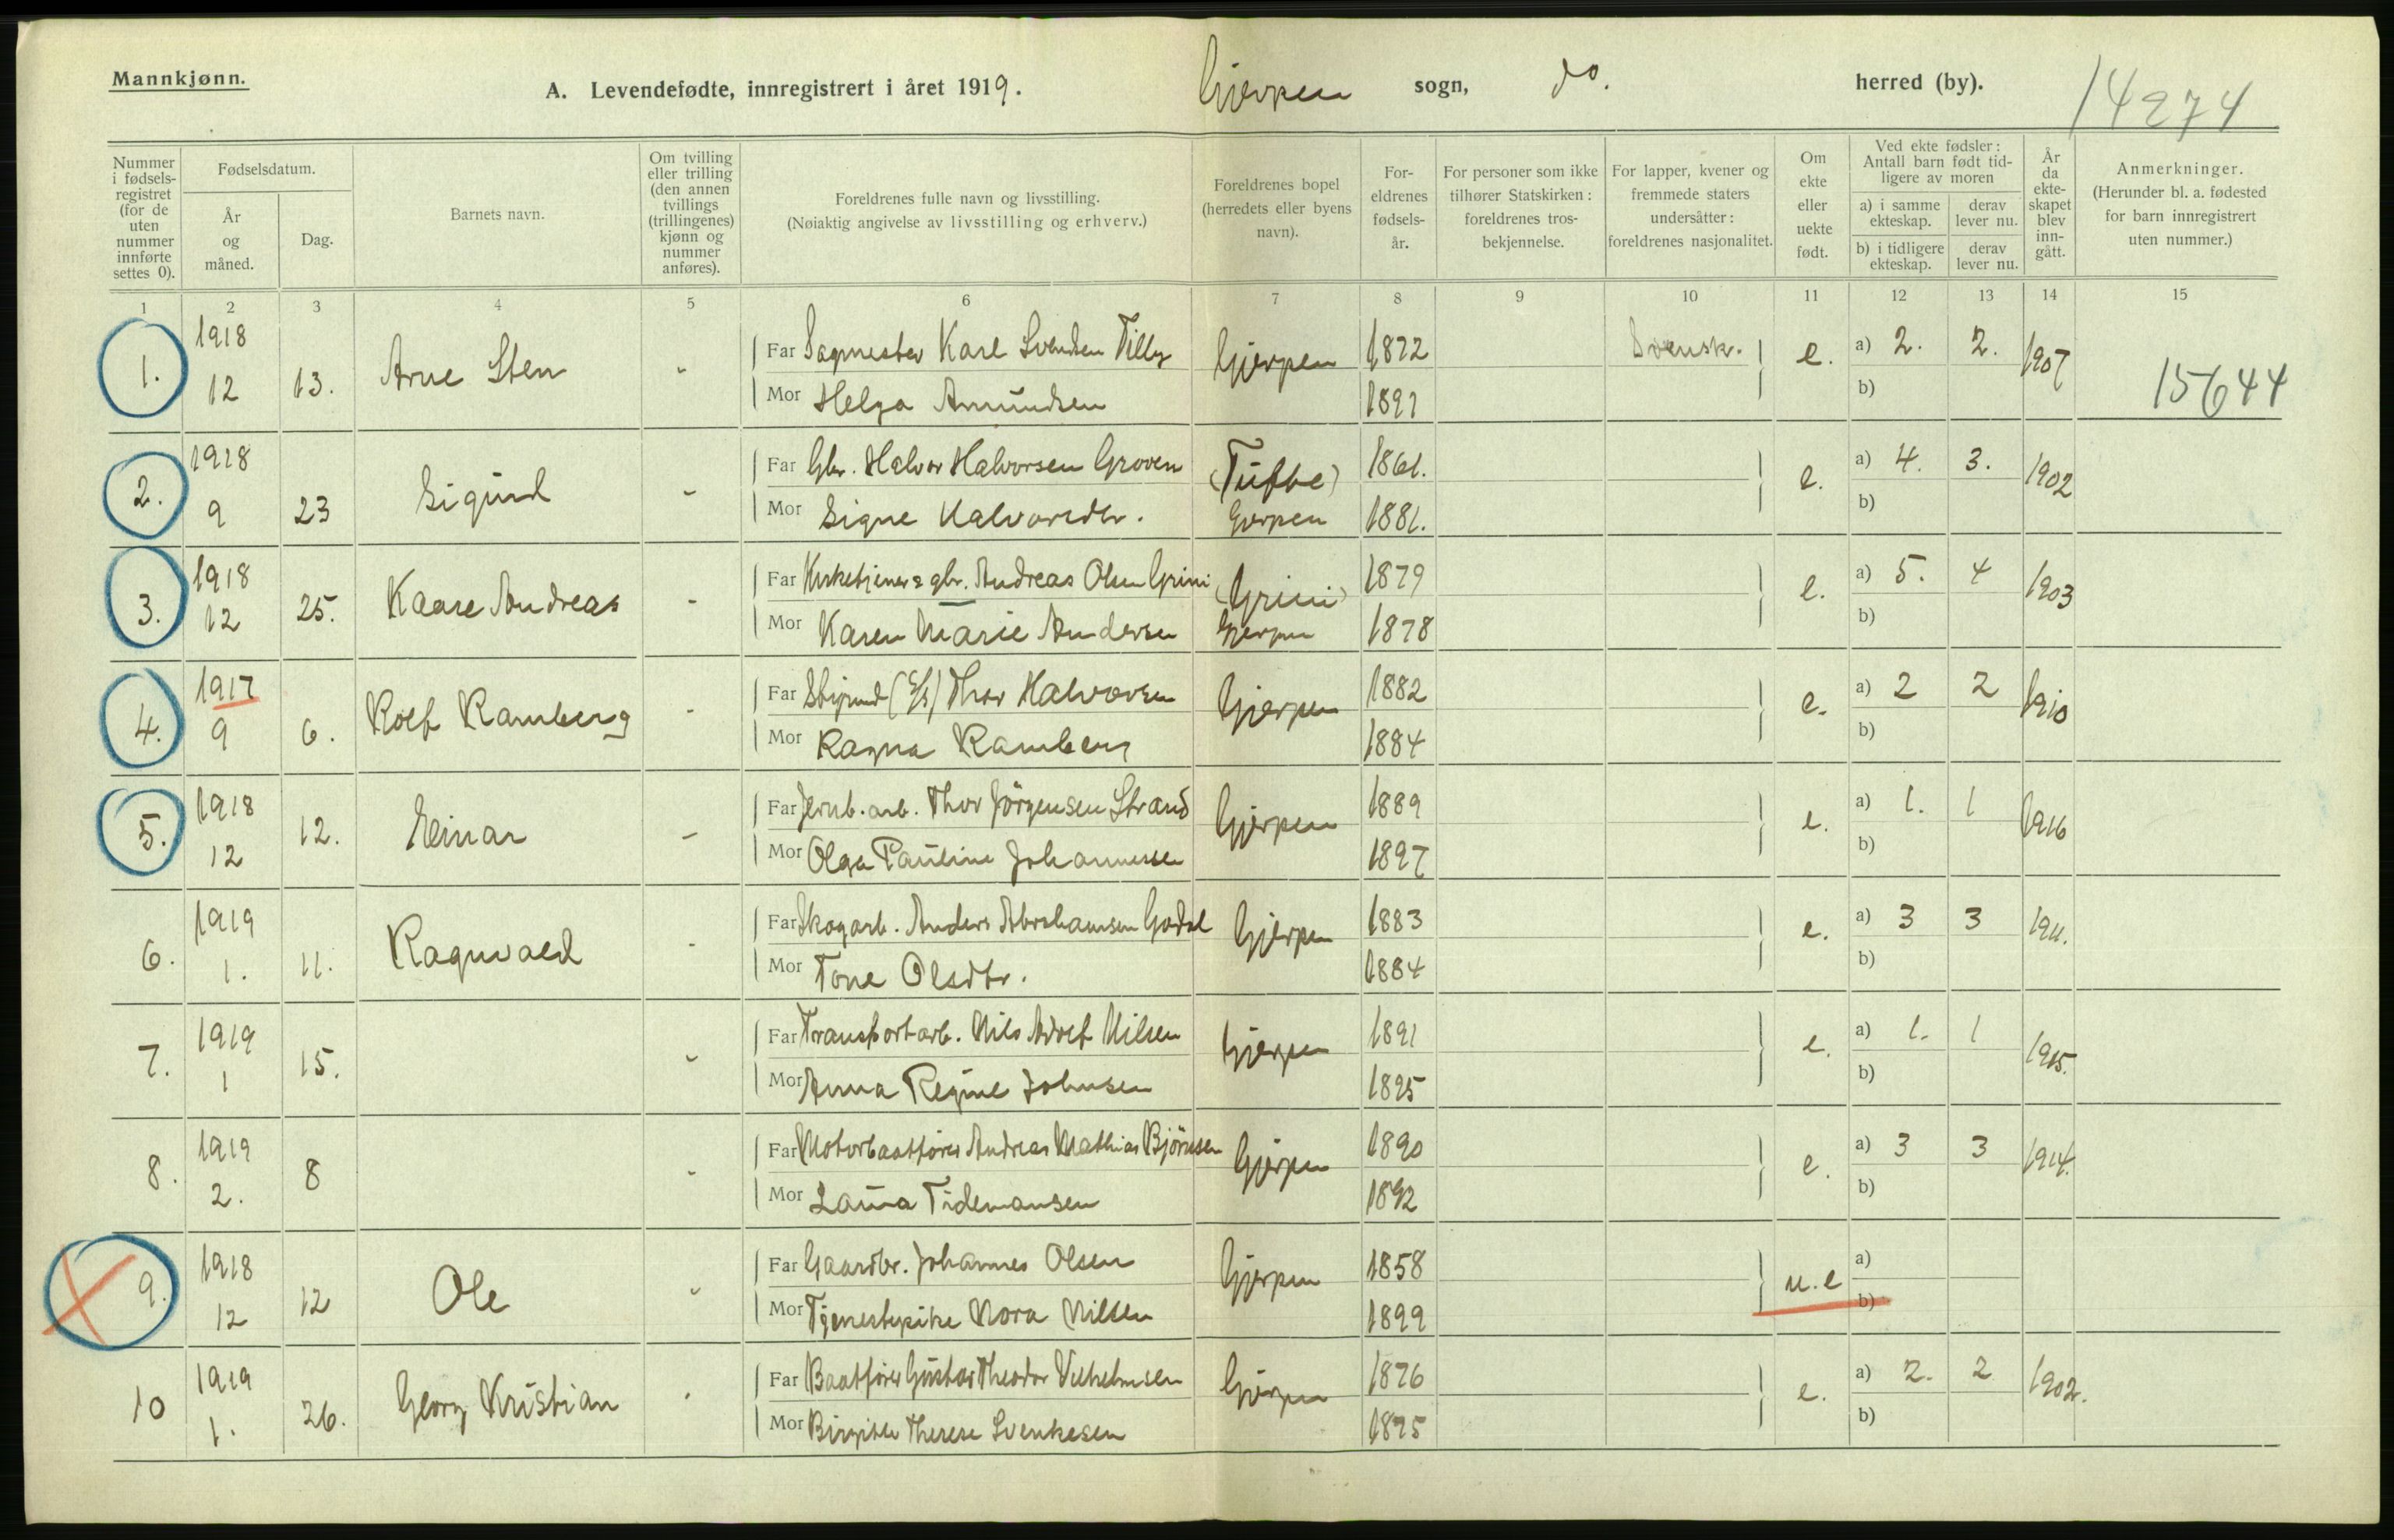 Mannkjønn.
A. Levendefødte, innregistrert i året 1919. Gjerpen sogn, do. herred (by). 14274
Nummer i fødselsregistret (for de uten nummer innførte settes 0).
Fødselsdatum.
År og måned.
Dag.
Barnets navn.
Om tvilling eller trilling (den annen tvillings (trillingenes) kjønn og nummer anføres).
Foreldrenes fulle navn og livsstilling.
(Nøiaktig angivelse av livsstilling og erhverv.)
Foreldrenes bopel (herredets eller byens navn).
Foreldrenes fødselsår.
For personer som ikke tilhører Statskirken: foreldrenes trosbekjennelse.
For lapper, kvener og fremmede staters undersåtter: foreldrenes nasjonalitet.
Om ekte eller uekte født.
Ved ekte fødsler: Antall barn født tidligere av moren
a) i samme ekteskap. derav lever nu.
b) i tidligere ekteskap. derav lever nu.
År da ekteskapet blev inngått.
Anmerkninger.
(Herunder bl. a. fødested for barn innregistrert uten nummer.)
1 2 3 4 5 6 7 8 9 10 11 12 13 14 15
1. 1918 12 13. Arne Sten - Far Sagmester Karl Svendsen Tilly Gjerpen 1872 Svensk. e. a) 2. 2. 1907 15644
Mor Helga Amundsen 1891 b)
2. 1918 9 23 Sigurd - Far Gbr. Halvor Halvorsen Groven (Tufte) 1861. e. a) 4. 3. 1902
Mor Signe Halvorsdtr. Gjerpen 1881. b)
3. 1918 12 25. Kaare Andreas - Far Kirketjener & gbr. Andreas Olsen Grini (Grini) 1879 e. a) 5. 4 1903
Mor Karen Marie Andersen Gjerpen 1878 b)
4. 1917 9 6. Rolf Ramberg - Far Thor Halvorsen Gjerpen 1882 e. a) 2 2 1910
Mor Ragna Ramberg 1884 b)
5. 1918 12 12. Einar - Far Jernb. arb. Thor Jörgensen Strand Gjerpen 1889 e. a) 1. 1 1916
Mor Olga Pauline Johannessen 1897 b)
6. 1919 1. 11. Ragnvald - Far Skogarb. Anders Abrahamsen Godal Gjerpen 1883 e. a) 3 3 1911.
Mor Tone Olsdtr. 1884 b)
7. 1919 1 15. - Far Transportarb. Nils Adolf Nilsen Gjerpen 1891 e. a) 1. 1 1915.
Mor Anna Regine Johnsen 1895 b)
8. 1919 2. 8 - Far Motorbaatfører Andreas Mathias Björnsen Gjerpen 1890 e. a) 3 3 1914.
Mor Laura Tidemansen 1892 b)
9. 1918 12 12 Ole - Far Gaardbr. Johannes Olsen Gjerpen 1858 u.e a)
Mor Tjenestepike Nora Nilsen 1899 b)
10 1919 1. 26. Georg Kristian - Far Baatfører Gustav Theodor Vilhelmsen Gjerpen 1876 e. a) 2. 2 1902.
Mor Birgitte Therese Svenkesen 1875 b)